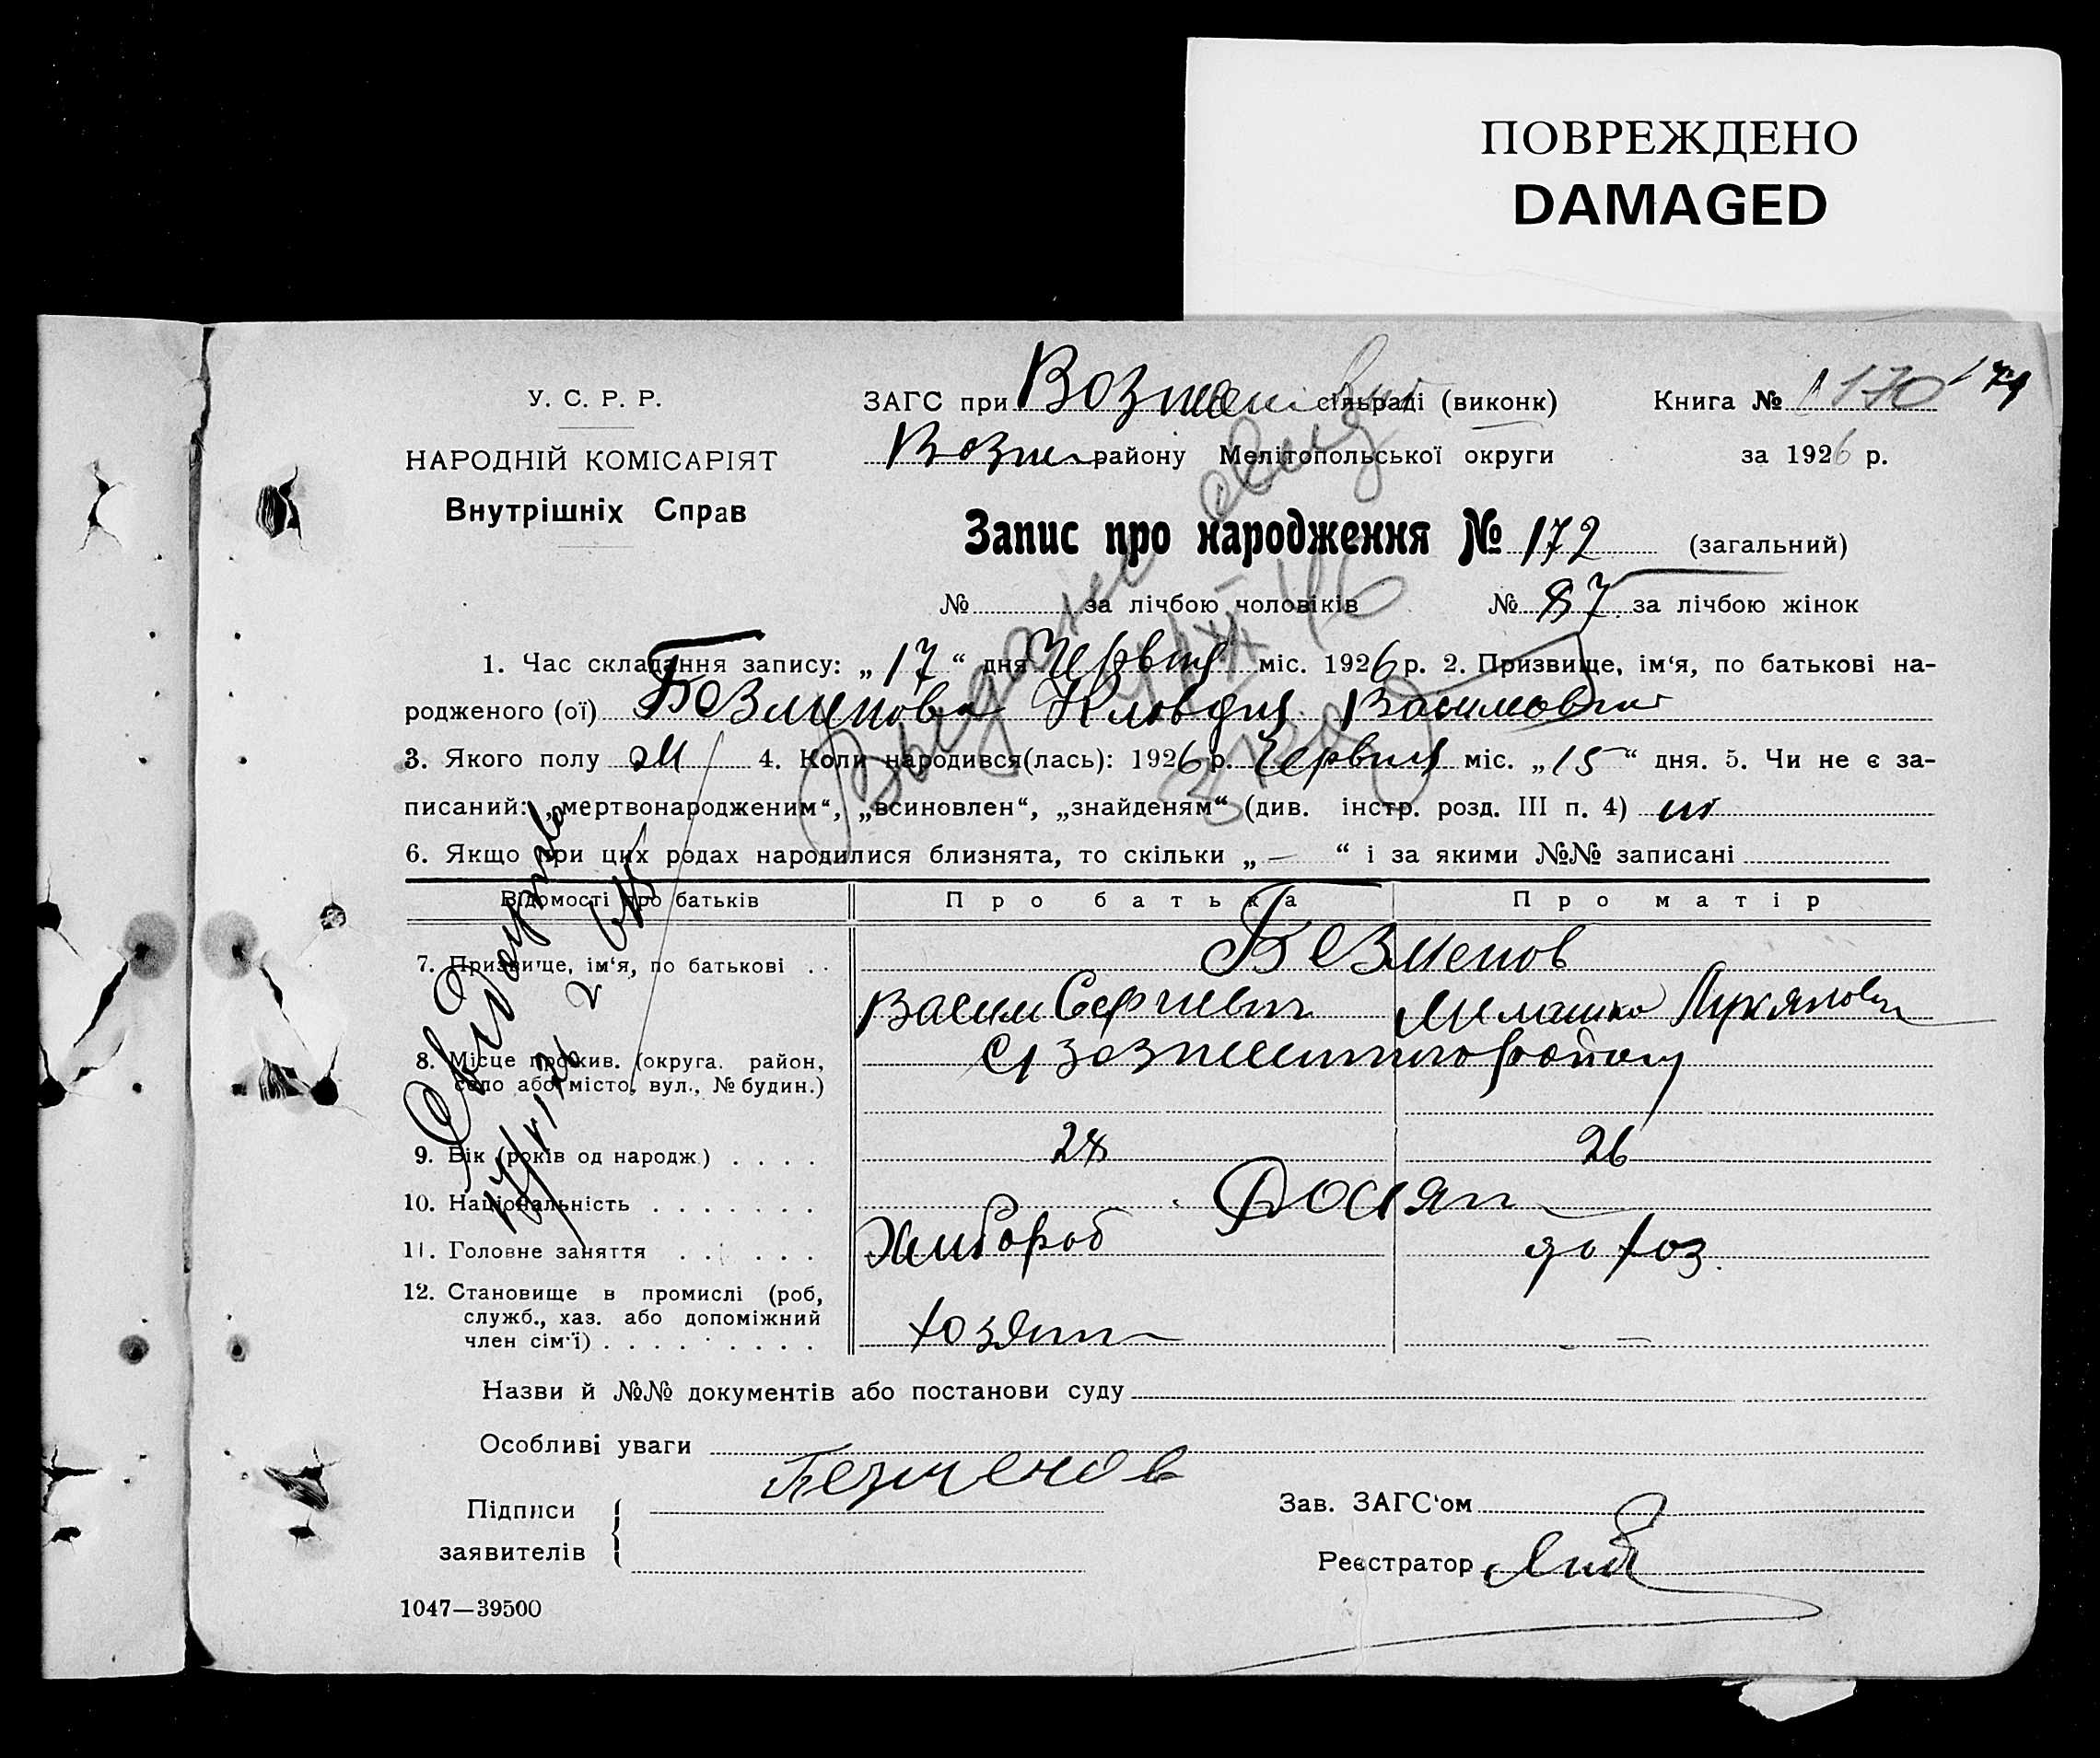 ПОВРЕЖДЕНО
DAMAGED
У. С. Р. Р.
НАРОДНІЙ КОМІСАРІЯТ
Внутрішніх Справ
ЗАГС при сільраді (виконк)
району Мелітопольської округи
Книга № 170
за 1926 р.
Запис про народження № 172 (загальний)
№ за лічбою чоловіків № 87 за лічбою жінок
1. Час складання запису: „17“ дня Червня міс. 1926 р. 2. Призвище, ім‘я, по батькові на-
родженого (ої) Безменова Клавдия
3. Якого полу 4. Коли народився(лась): 1926 р. Червня міс. „15“ дня. 5. Чи не є за-
писаний: „мертвонародженим“, „всиновлен“, „знайденям“ (див. інстр. розд. III п. 4) ні
6. Якщо при цих родах народилися близнята, то скільки „—“ і за якими №№ записані
Відомості про батьків Про батька Про матір
7. Призвище, ім‘я, по батькові . . Безменов
8. Місце прожив. (округа. район,
село або місто, вул., № будин.)
9. Вік (років од народж.) . . . . 28 26
10. Національність . . . . . . .
11. Головне заняття . . . . . . Хлибороб до хоз.
12. Становище в промислі (роб,
служб., хаз. або допоміжний
член сім‘ї) . . . . . . . . . хозяин —
Назви й №№ документів або постанови суду
Особливі уваги
Безменов
Підписи
заявителів
Зав. ЗАГС‘ом
Реєстратор
1047—39500